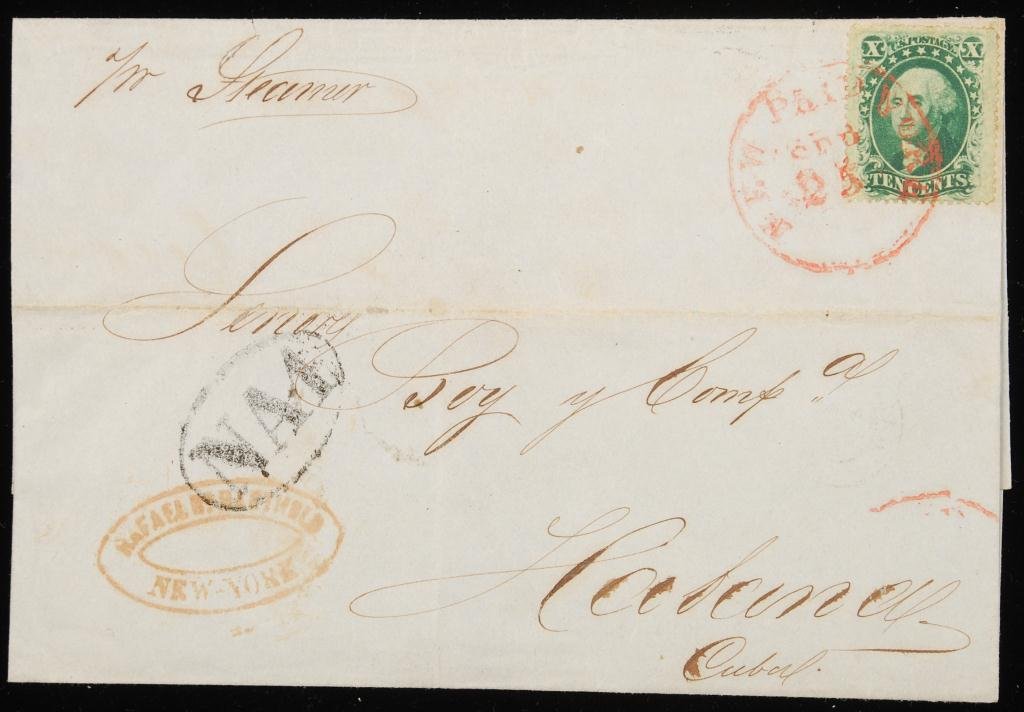 p/r Steamer
X U.S. POSTAGE. X
TEN CENTS
NEW PAID
SEP
25
Senores
Boy y Comp.a
NA1
RAFAEL
NEW-YORK
Habana
Cuba.